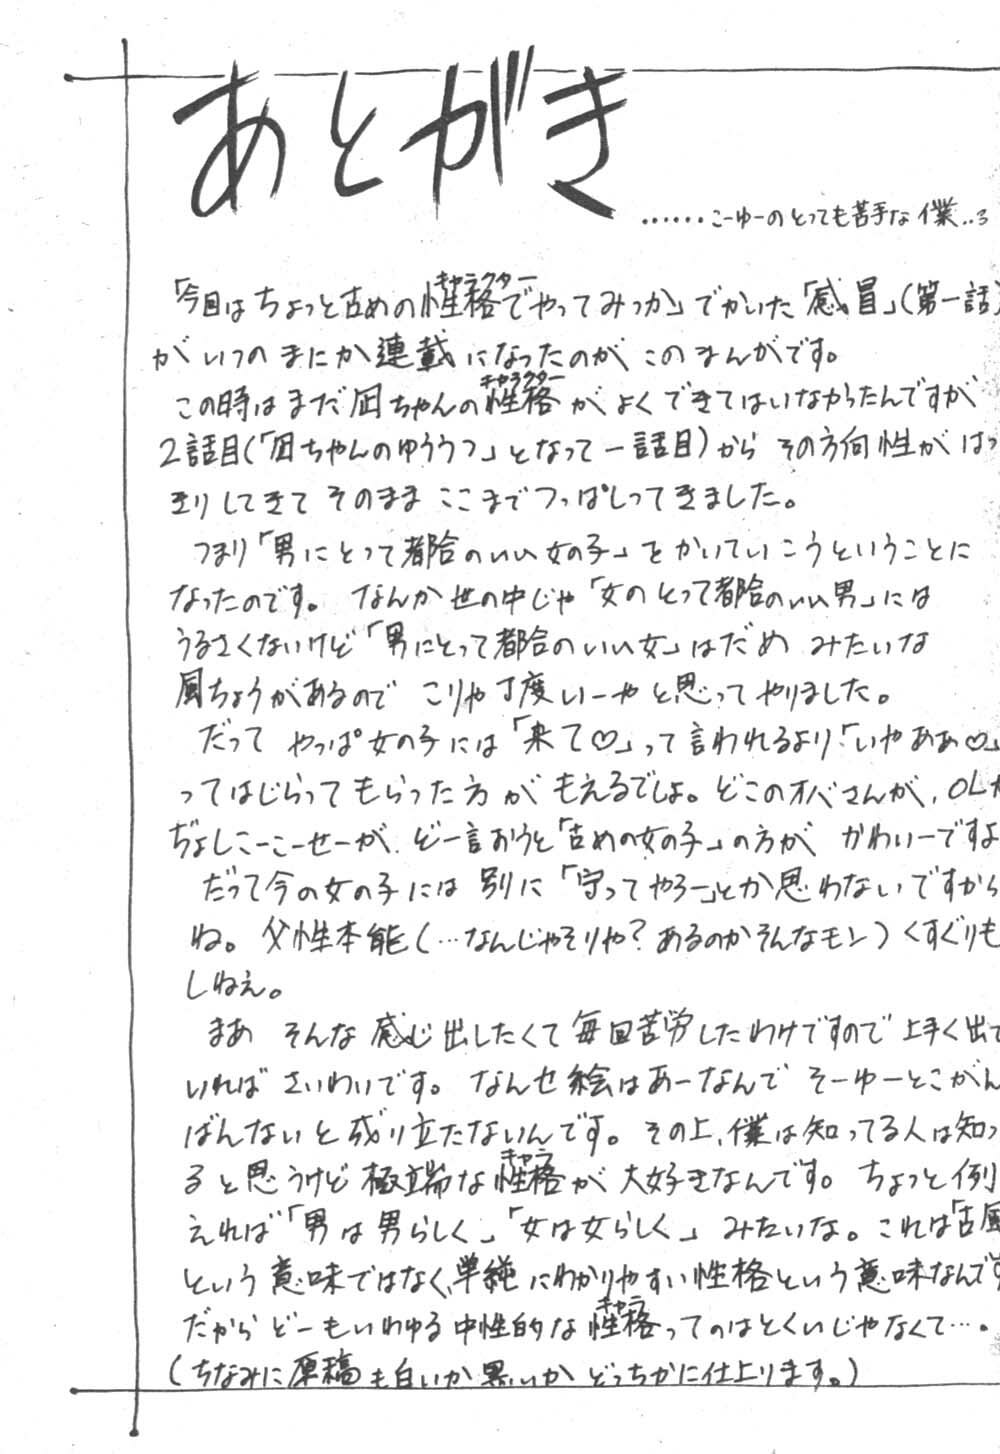 あとがき
……こーゆーのとっても苦手な僕..
「今回はちょっと古めの性格でやってみっか」でかいた「感冒」(第一話)
キャラクター
がいつのまにか連載になったのがこのまんがです。
この時はまだ凪ちゃんの性格がよくできてはいなかったんですが
キャラクター
2話目(「凪ちゃんのゆううつ」となって一話目)からその方向性がはっ
きりしてきてそのままここまでつっぱしってきました。
つまり「男にとって都合のいい女の子」をかいていこうということに
なったのです。なんか世の中じゃ「女のとって都合のいい男」には
うるさくないけど「男にとって都合のいい女」はだめみたいな
風ちょうがあるのでこりゃ丁度いーやと思ってやりました。
だってやっぱ女の子には「来て♡」って言われるより「いやああ♡」
ってはじらってもらった方がもえるでしょ。どこのオバさんが、OLが
ぢょしこーこーせーが、どー言おうと「古めの女の子」の方がかわいーですよ
だって今の女の子には別に「守ってやろー」とか思わないですから
ね。父性本能(…なんじゃそりゃ?あるのかそんなモン)くすぐりも
しねぇ。
まあそんな感じ出したくて毎回苦労したわけですので上手く出て
いればさいわいです。なんせ絵はあーなんでそーゆーとこがん
ばんないと成り立たないんです。その上、僕は知ってる人は知っ
ると思うけど極端な性格が大好きなんです。ちょっと例
キャラ
えれば「男は男らしく」「女は女らしく」みたいな。これは「古風
という意味ではなく、単純にわかりやすい性格という意味なんです
だからどーもいわゆる中性的な性格ってのはとくいじゃなくて…。
キャラ
(ちなみに原稿も白いか黒いかどっちかに仕上ります。)